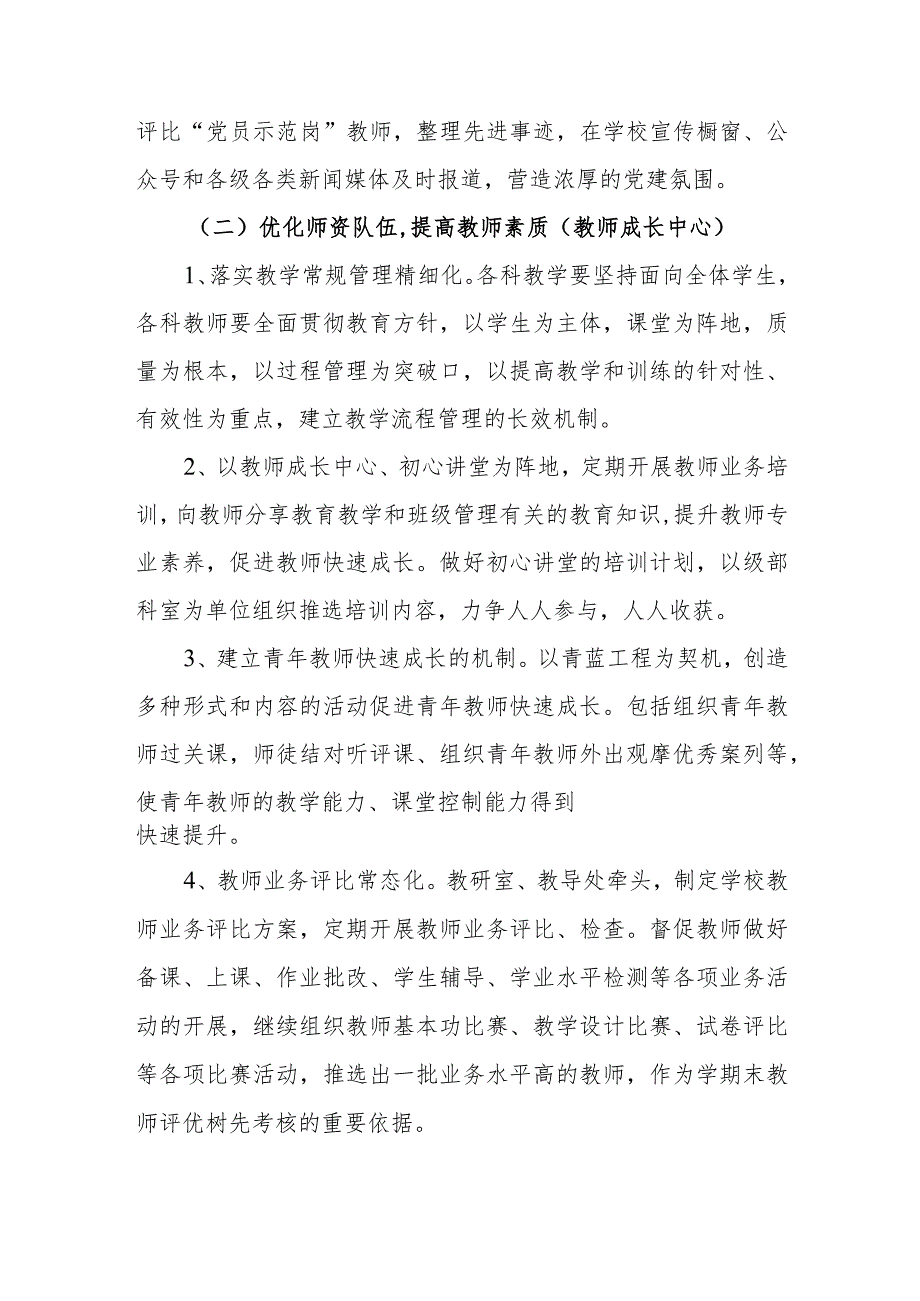 评比“党员示范岗”教师，整理先进事迹，在学校宣传橱窗、公
众号和各级各类新闻媒体及时报道，营造浓厚的党建氛围。
（二）优化师资队伍,提高教师素质（教师成长中心）
1、落实教学常规管理精细化。各科教学要坚持面向全体学生，
各科教师要全面贯彻教育方针，以学生为主体，课堂为阵地，质
量为根本，以过程管理为突破口，以提高教学和训练的针对性、
有效性为重点，建立教学流程管理的长效机制。
2、以教师成长中心、初心讲堂为阵地，定期开展教师业务培
训，向教师分享教育教学和班级管理有关的教育知识,提升教师专
业素养，促进教师快速成长。做好初心讲堂的培训计划，以级部
科室为单位组织推选培训内容，力争人人参与，人人收获。
3、建立青年教师快速成长的机制。以青蓝工程为契机，创造
多种形式和内容的活动促进青年教师快速成长。包括组织青年教
师过关课，师徒结对听评课、组织青年教师外出观摩优秀案列等，
使青年教师的教学能力、课堂控制能力得到
快速提升。
4、教师业务评比常态化。教研室、教导处牵头，制定学校教
师业务评比方案，定期开展教师业务评比、检查。督促教师做好
备课、上课、作业批改、学生辅导、学业水平检测等各项业务活
动的开展，继续组织教师基本功比赛、教学设计比赛、试卷评比
等各项比赛活动，推选出一批业务水平高的教师，作为学期末教
师评优树先考核的重要依据。